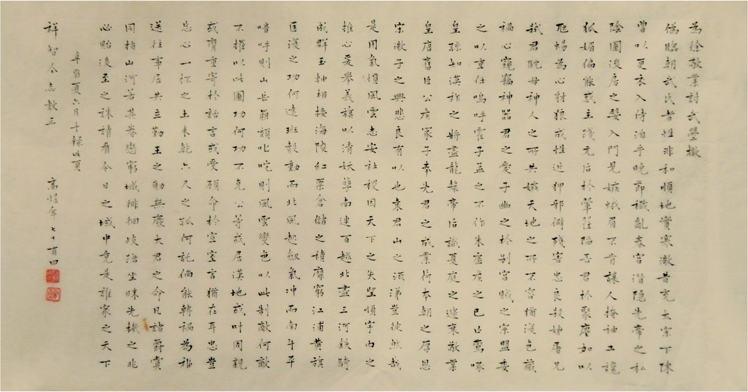 為徐敬業討武曌檄
偽臨朝武氏者性非和順地實寒微昔充太宗下陳
曾以更衣入侍洎乎晚節穢亂春宮潛隱先帝之私
陰圖後房之嬖入門見嫉蛾眉不肯讓人掩袖工讒
狐媚偏能惑主踐元后於翬翟陷吾君於聚麀加以
虺蜴為心豺狼成性近狎邪僻殘害忠良殺姊屠兄
弒君鴆母神人之所共嫉天地之所不容猶復包藏
禍心窺竊神器君之愛子幽之於別宮賊之宗盟委
之以重任嗚呼霍子孟之不作朱虛侯之已亡燕啄
皇孫知漢祚之將盡龍漦帝后識夏庭之遽衰敬業
皇唐舊臣公侯冢子奉先君之成業荷本朝之厚恩
宋微子之興悲良有以也袁君山之流涕豈徒然哉
是用氣憤風雲志安社稷因天下之失望順宇內之
推心爰舉義旗以清妖孽南連百越北盡三河鐵騎
成群玉軸相接海陵紅粟倉儲之積靡窮江浦黃旗
匡復之功何遠班聲動而北風起劍氣沖而南斗平
喑嗚則山岳崩頹叱吒則風雲變色以此制敵何敵
不摧以此圖功何功不克公等或居漢地或叶周親
或膺重寄於話言或受顧命於宣室言猶在耳忠豈
忘心一抔之土未乾六尺之孤何託倘能轉禍為福
送往事居共立勤王之勳無廢大君之命凡諸爵賞
同指山河若其眷戀窮城徘徊歧路坐昧先幾之兆
必貽後至之誅請看今日之域中竟是誰家之天下
辛丑夏六月于
祥智 教正 高惜 七十有四